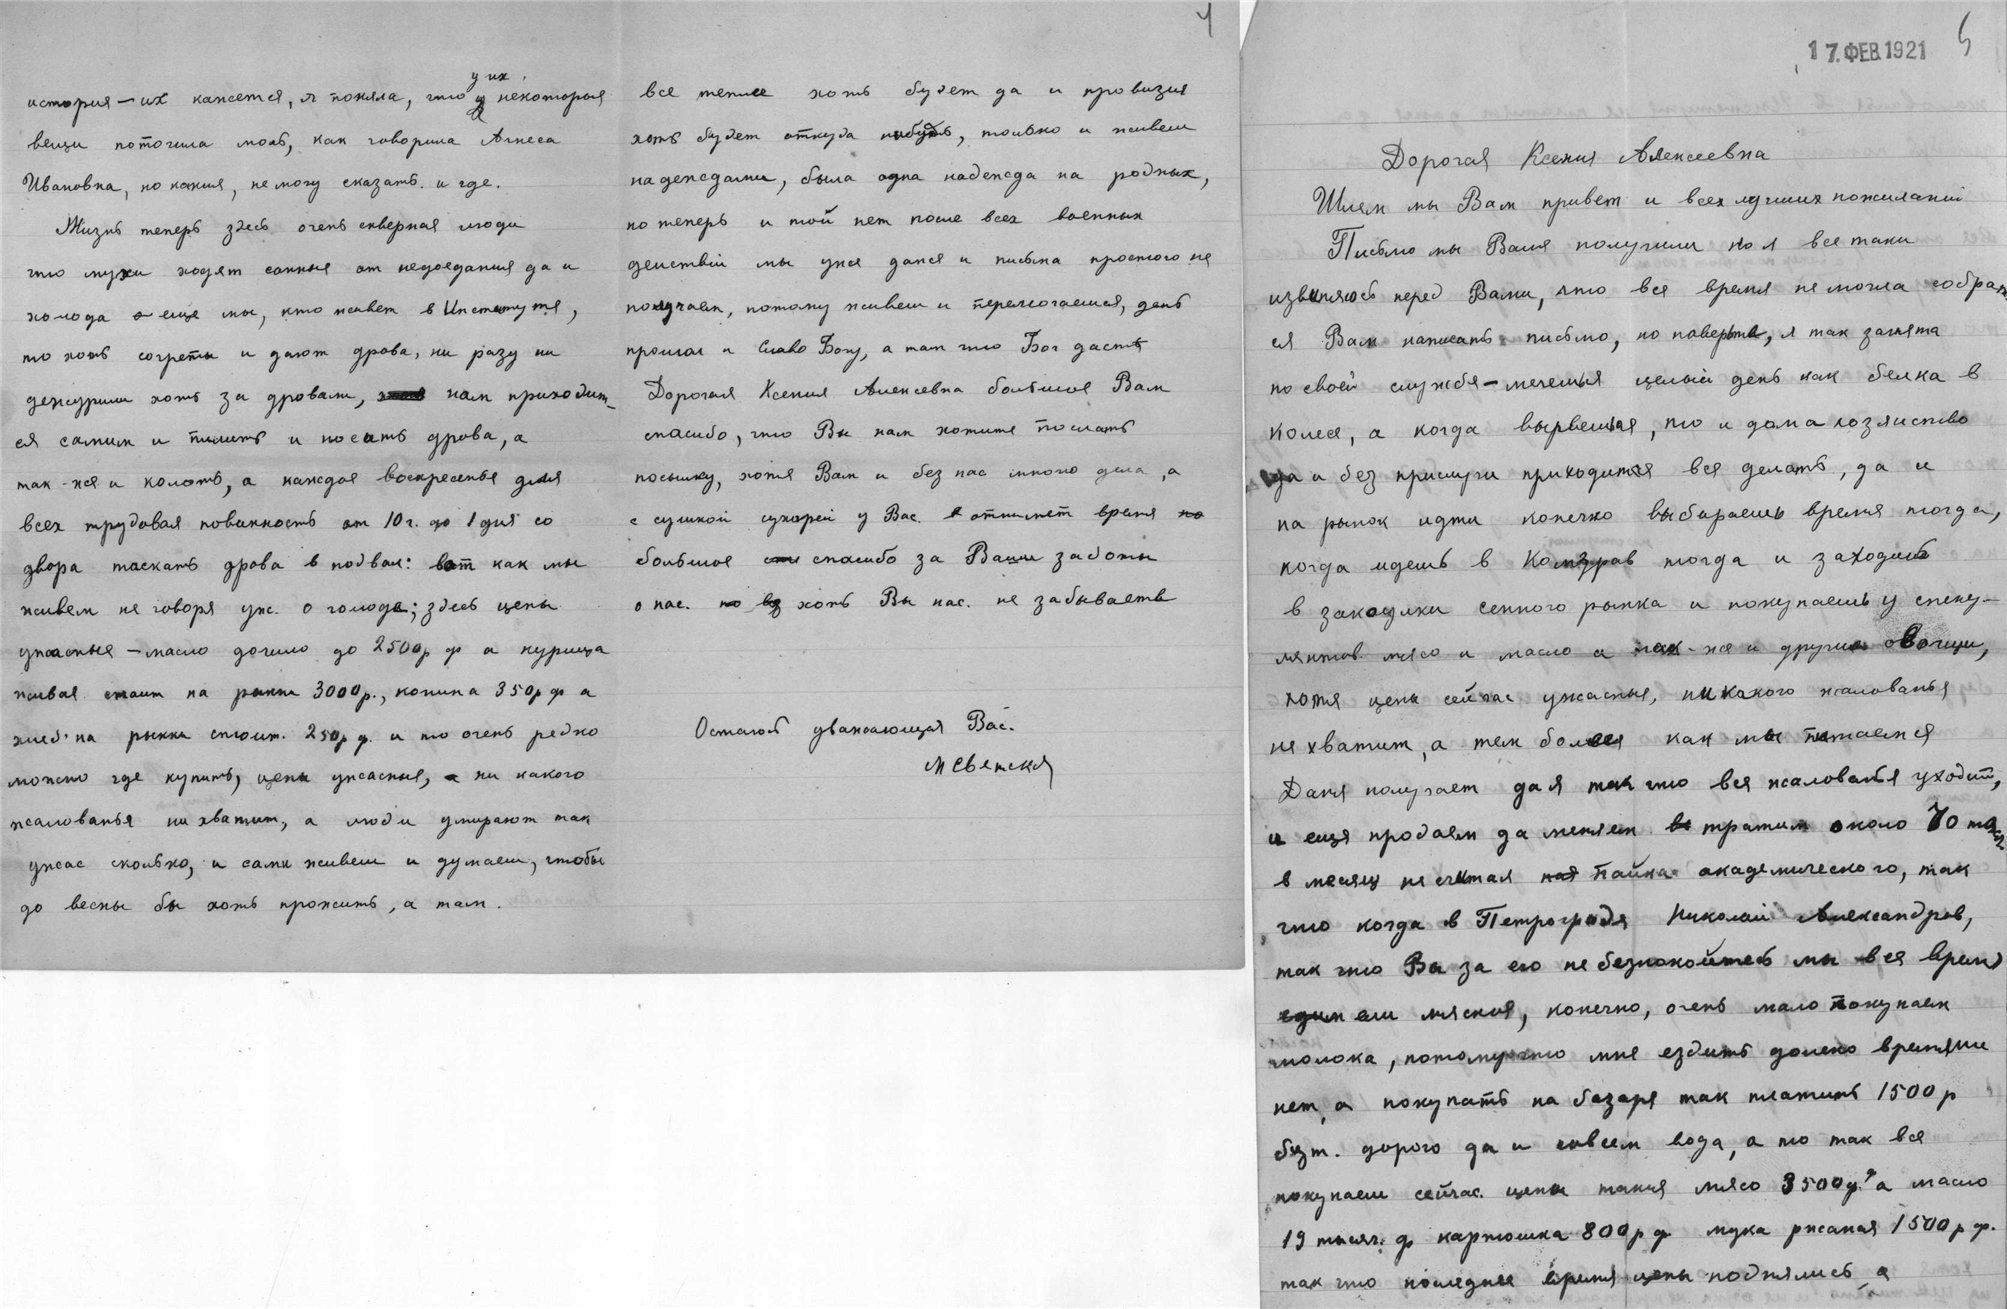 история – их кажется, я поняла, что у их некоторыя
вещи поточила моль, как говорила Агнеса
Ивановна, но какия, не могу сказать и где.
Жизнь теперь здесь очень скверная люди
что мухи ходят сонныя от недоедания да и
холода а еще мы, кто живет в Институтя,
то хоть согреты и дают дрова, ни разу ни
дежурили хоть за дровами, нам приходит-
ся самим и пилить и носить дрова, а
так-жа и колоть, а каждая воскресенья для
всех трудовая повинность от 10 г. до 1 дня со
двора таскать дрова в подвал: вот как мы
живем не говоря уж. о голоде; здесь цены
ужасныя – масло дошло до 2500 р ф а курица
живая стоит на рынки 3000 р., конина 350 р ф а
хлеб на рынки стоит. 250 р ф. и то очень редко
можно где купить, цены ужасныя, ни какого
жалованья ни хватит, а люди умирают так
ужас сколько, и сами живем и думаем, чтобы
до весны бы хоть прожить, а там.
4
все теплее хоть будет да и провизия
хоть будет откуда нибудь, только и живем
надеждами, была одна надежда на родных,
но теперь и той нет после всех военных
действий мы уже даже и письма простого не
получаем, потому живем и перемогаемся, день
прошол и Слава Богу, а там что Бог даст
Дорогая Ксения Алексеевна большое Вам
спасибо, что Вы нам хотите послать
посылку, хотя Вам и без нас много дела, а
с сушкой сухарей у Вас. отнимет время
большое спасибо за Ваши заботы
о нас. хоть Вы нас. не забываете
Остаюсь уважающая Вас.
17. ФЕВ 1921
5
Дорогая Ксения Алексеевна
Шлем мы Вам привет и всех лучших пожеланий
Письмо мы Ваше получили но я все таки
извиняюсь перед Вами, что все время не могла собрать
ся Вам написать письмо, но поверьте, я так занята
по своей службе – мечешься целый день как белка в
колесе, а когда вырвешься, то и дома хозяйство
да и без прислуги приходится вся делать, да и
на рынок идти конечно выбираешь время тогда,
когда идешь в Комздрав тогда и заходишь
в закоулки сенного рынка и покупаешь у спеку-
лянтов мясо и масло а так-же и другие овощи,
хотя цены сейчас ужасныя, никакого жалованья
не хватит, а тем более как мы питаемся
Даня получает да я так что вся жалованья уходит,
и ещя продаем да меняем тратим около 70 тыс
в месяц не считая пайка академического, так
что когда в Петрограде Николай Александров,
так что Вы за его не безпокойтесь мы все время
ели мясныя, конечно, очень мало покупаем
молока, потому что мне ездить далеко времяни
нет, а покупать на базаря так платить 1500 р
бут. дорого да и совсем вода, а то так вся
покупаем сейчас цены такия мясо 3500 р ф а масло
19 тысяч. ф картошка 800 р ф мука ржаная 1500 р ф.
так что последнее время цены поднялись а